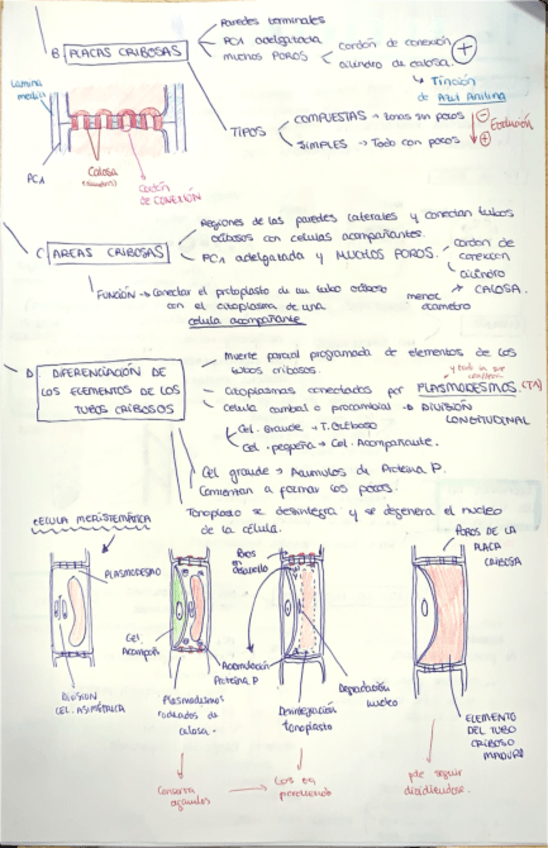 Paredes terminales
B PLACAS CRIBOSAS
PC1 adelgatada
muchos POROS
cordón de conexión
cilindro de calosa.
+
Tinción
de Azul Anilina
Lamina
media
TIPOS
COMPUESTAS → zonas sin poros
SIMPLES → Todo con poros
- +
Evolución
PC1
Calosa
Cordón
DE CONEXIÓN
Regiones de las paredes laterales y conectan tubos
cribosos con celulas acompañantes.
C AREAS CRIBOSAS
PC1 adelgatada y MUCHOS POROS.
cordon de
conexion
cilindro
CALOSA.
menor
diametro
FUNCIÓN → Conectar el protoplasto de un tubo criboso
con el citoplasma de una
celula acompañante
D DIFERENCIACIÓN DE
LOS ELEMENTOS DE LOS
TUBOS CRIBOSOS
Muerte parcial programada de elementos de los
tubos cribosos.
Citoplasmas conectados por PLASMODESMOS. (TA)
celula cambial o procambial → DIVISIÓN
LONGITUDINAL
Cel. Grande → T. Criboso
Cel. pequeña → Cel. Acompañante.
Cel grande → Acumulos de Proteina P.
Comientan a formar los poros.
Tonoplasto se desintegra y se degenera el nucleo
de la célula.
CELULA MERISTEMÁTICA
PLASMODESMO
DIVISION
CEL. ASIMÉTRICA
Cel.
Acompañ.
Plasmodesmos
rodeados de
calosa.
Poros
en
desarrollo
Acumulación
Proteina P
Desintegración
tonoplasto
Degradación
nucleo
POROS DE LA
PLACA
CRIBOSA
ELEMENTO
DEL TUBO
CRIBOSO
MADURO
Conserva
organulos
Los va
perdiendo
pde seguir
dividiendose.